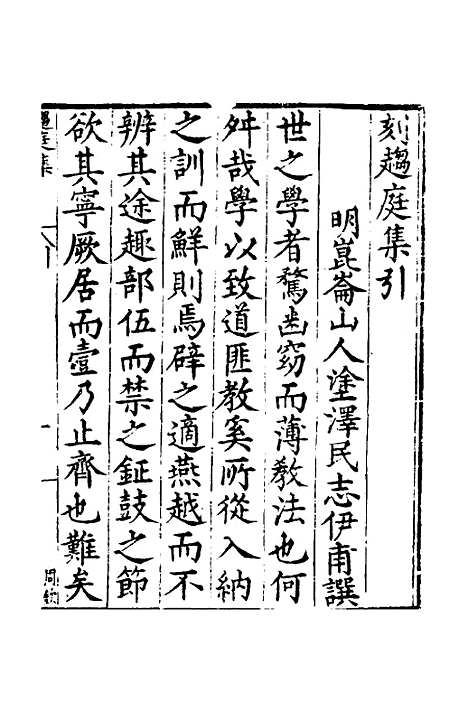 刻趨庭集引
明崑崙山人塗澤民志伊甫譔
世之學者騖幽窈而薄敎法也何
舛哉學以致道匪教奚所從入納
之訓而鮮則焉辟之適燕越而不
辨其途趣部伍而禁之鉦鼓之節
欲其寧厥居而壹乃止齊也難矣
趨庭集